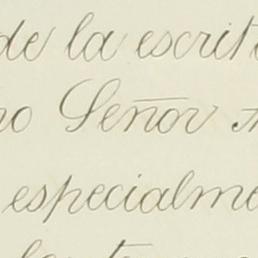 de la escrit
no Señor
especialme